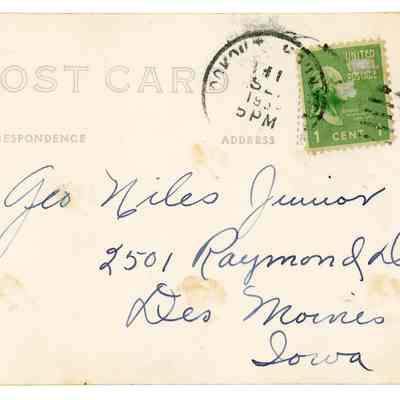 OST CARD
RESPONDENCE ADDRESS
5 PM
UNITED
POSTAGE
1 CENT 1
Geo Niles Junior
2501 Raymond D
Des Moines
Iowa